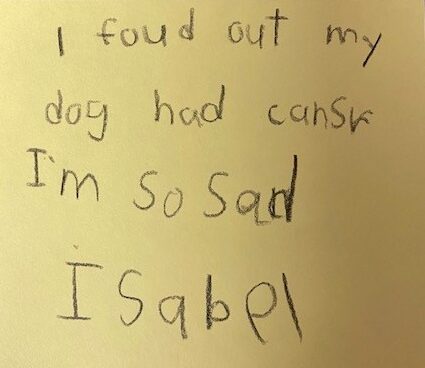 I foud out my
dog had cansr
I'm so sad
Isabel